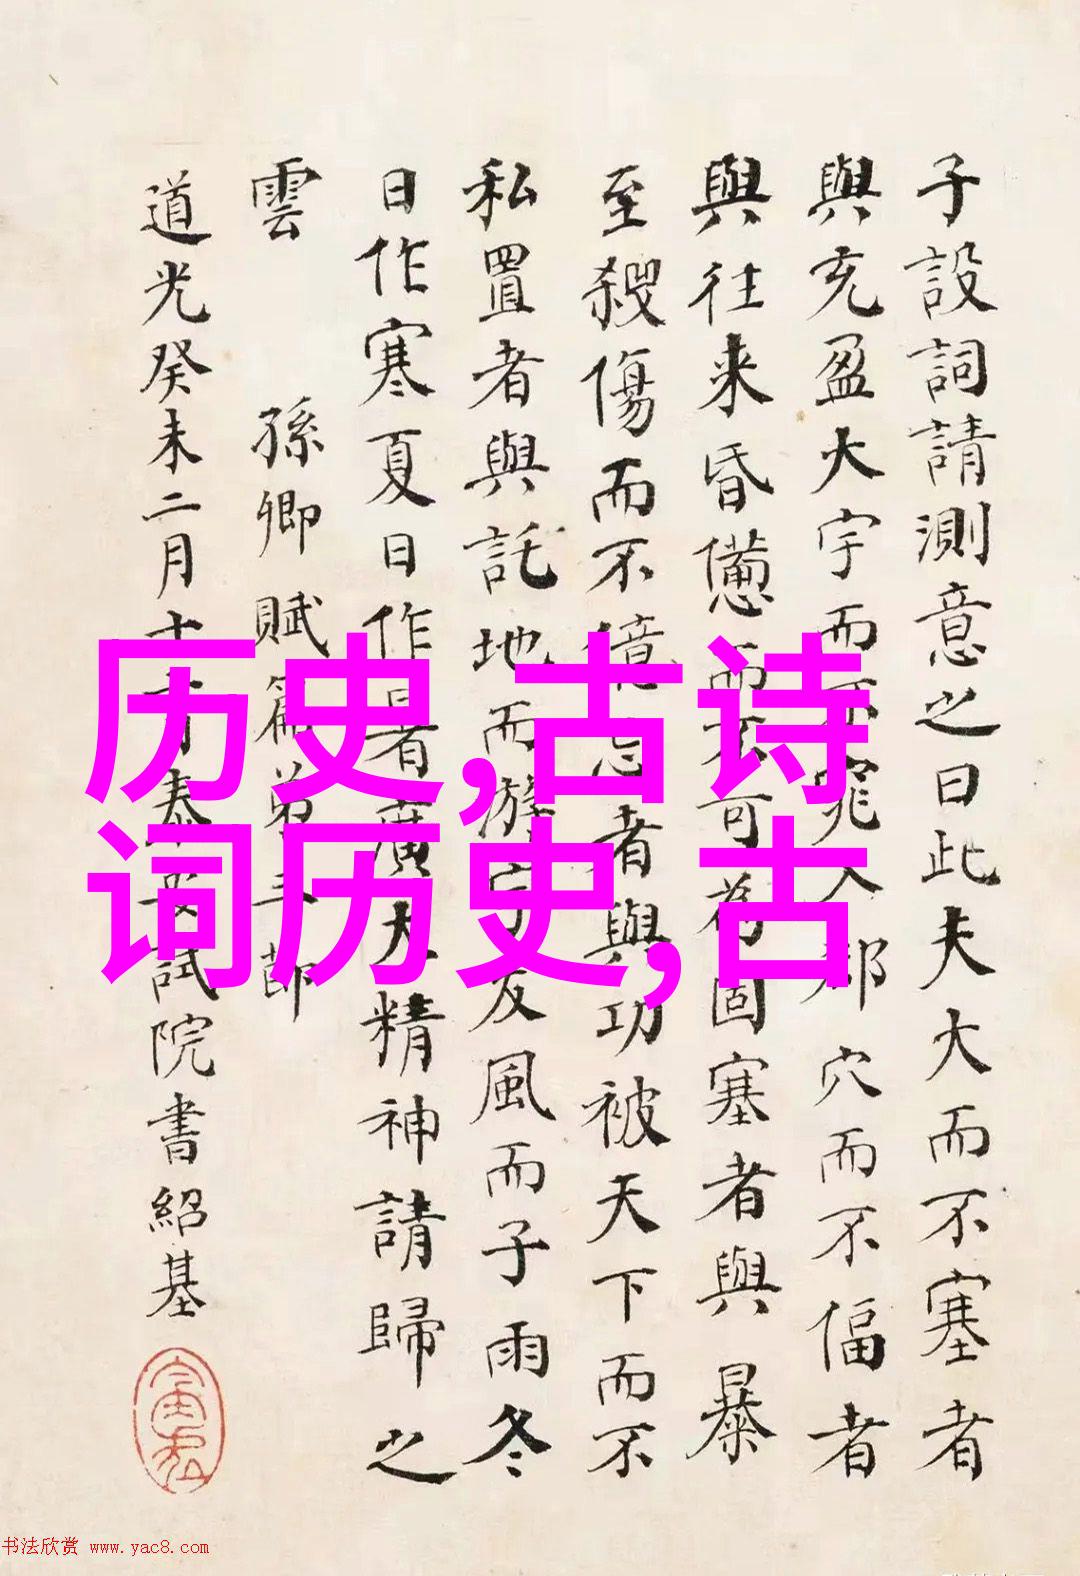 子設詞請測意之曰此夫大而不塞者
與充盈大宇而不窕入郄穴而不偪者
與往来昏憊而不可為固塞者與暴
至殺傷而不億忌者與功被天下而不
私置者與託地而游宇友風而子雨冬
日作寒夏日作暑廣大精神請歸之
雲 孫卿賦篇弟三節
道光癸未二月十 泰安試院書紹基
历史,古诗
词历史,古
书法欣赏 www.yac8.com